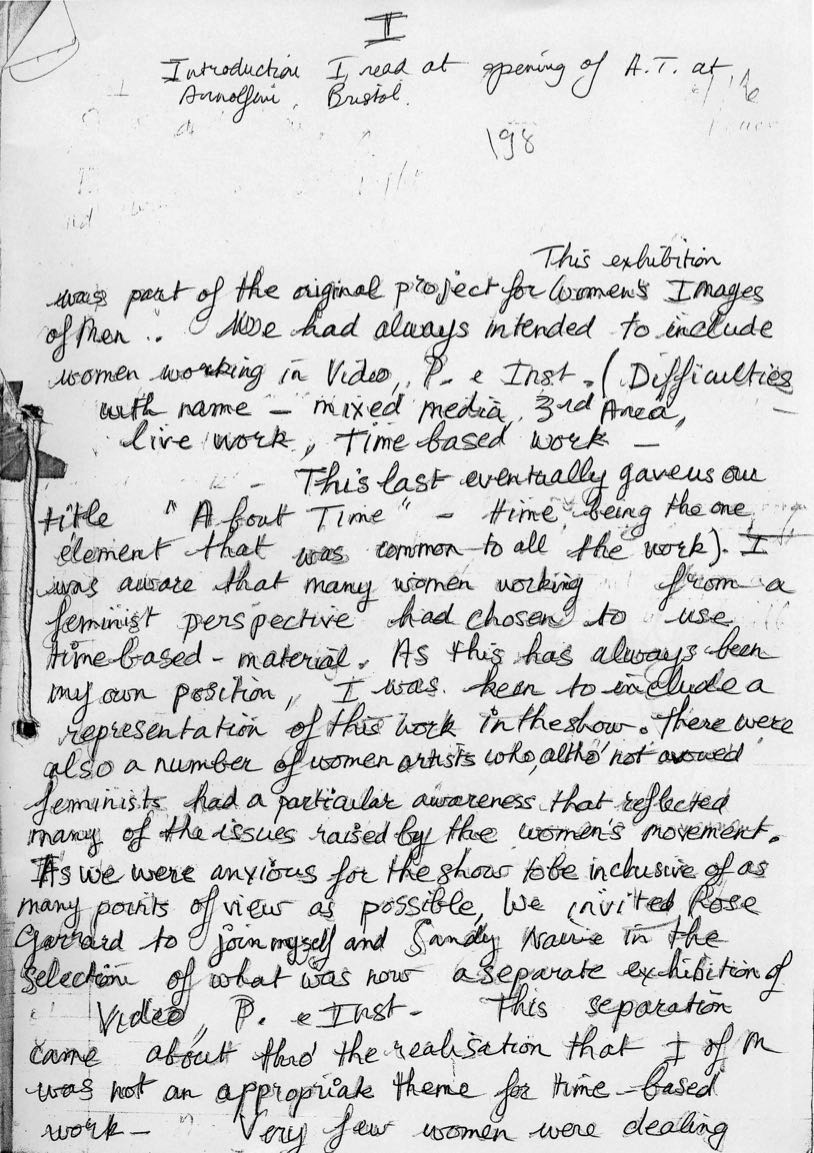 I
Introduction I read at opening of A.T. at
Arnolfini, Bristol.
198
This exhibition
was part of the original project for Women's Images
of Men .. We had always intended to include
women working in Video, P. & Inst. (Difficulties
with name – mixed media, 3rd Area,
live work, Time based work –
This last eventually gave us our
title "About Time" – time being the one
element that was common to all the work). I
was aware that many women working from a
feminist perspective had chosen to use
time based - material. As this has always been
my own position, I was keen to include a
representation of this work in the show. There were
also a number of women artists who, altho' not avowed
feminists had a particular awareness that reflected
many of the issues raised by the women's movement.
As we were anxious for the show to be inclusive of as
many points of view as possible, We invited Rose
Garrard to join myself and Sandy Nairne in the
selection of what was now a separate exhibition of
Video, P. & Inst - This separation
came about thro' the realisation that I of M
was not an appropriate theme for time-based
work – Very few women were dealing